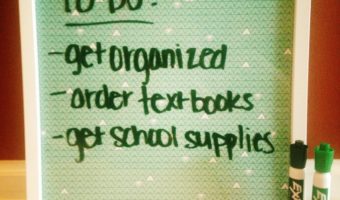 TO-DO:
-get organized
-order textbooks
-get school supplies
EXPO